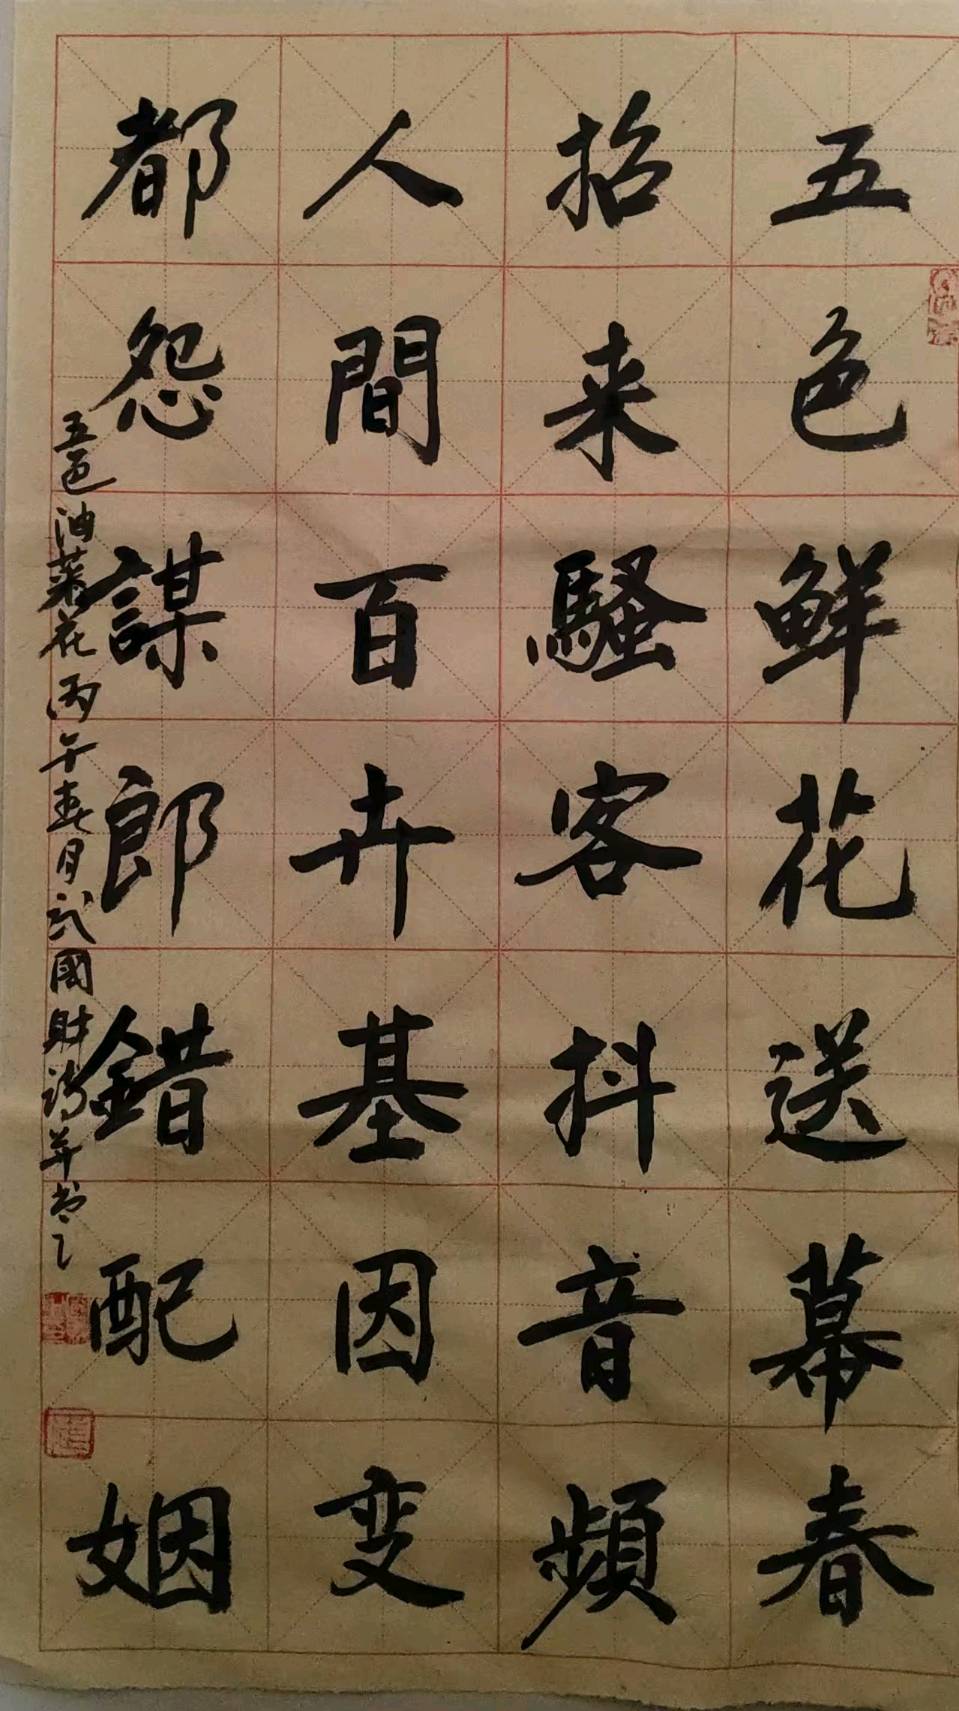 五色鲜花送幕春
招来騷客抖音頻
人間百卉基因变
都怨謀郎錯配姻
五色油菜花丙午春月武國財诗并书之